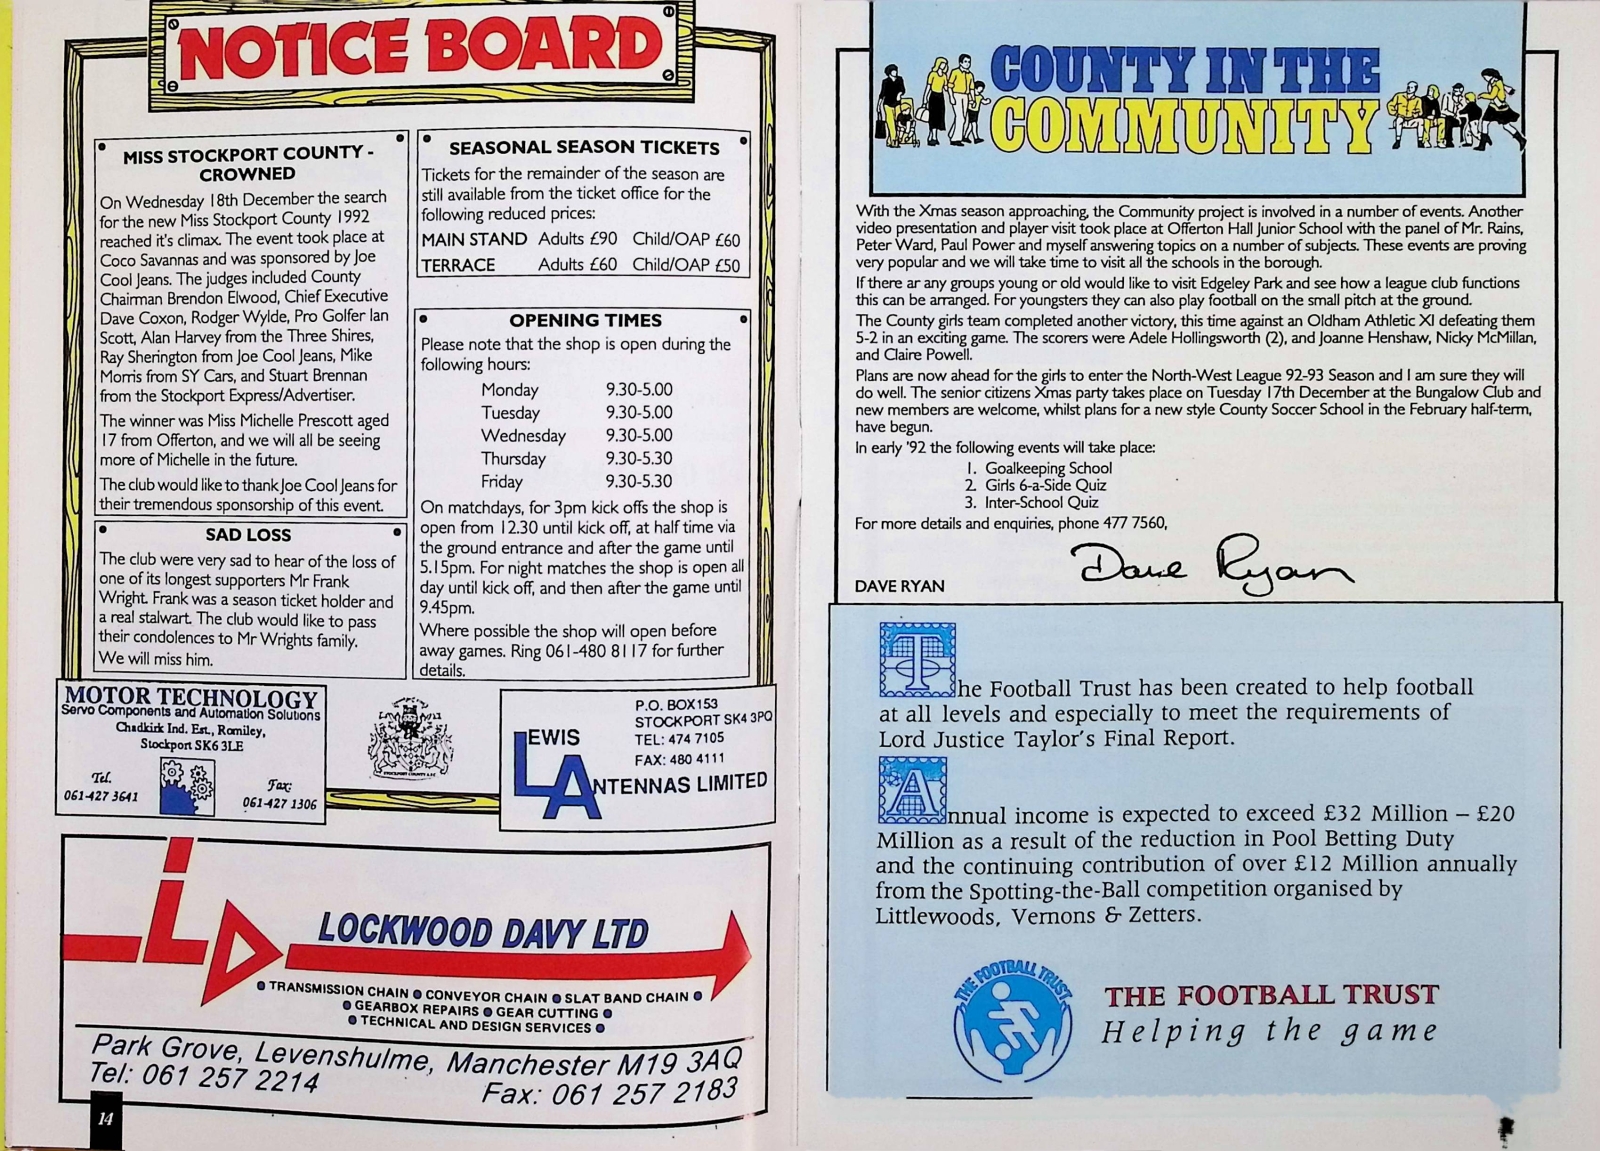 NOTICE BOARD
MISS STOCKPORT COUNTY -
CROWNED
On Wednesday 18th December the search
for the new Miss Stockport County 1992
reached it's climax. The event took place at
Coco Savannas and was sponsored by Joe
Cool Jeans. The judges included County
Chairman Brendon Elwood, Chief Executive
Dave Coxon, Rodger Wylde, Pro Golfer Ian
Scott, Alan Harvey from the Three Shires,
Ray Sherington from Joe Cool Jeans, Mike
Morris from SY Cars, and Stuart Brennan
from the Stockport Express/Advertiser.
The winner was Miss Michelle Prescott aged
17 from Offerton, and we will all be seeing
more of Michelle in the future.
The club would like to thank Joe Cool Jeans for
their tremendous sponsorship of this event.
SAD LOSS
The club were very sad to hear of the loss of
one of its longest supporters Mr Frank
Wright. Frank was a season ticket holder and
a real stalwart. The club would like to pass
their condolences to Mr Wrights family.
We will miss him.
SEASONAL SEASON TICKETS
Tickets for the remainder of the season are
still available from the ticket office for the
following reduced prices:
MAIN STAND Adults £90 Child/OAP £60
TERRACE Adults £60 Child/OAP £50
OPENING TIMES
Please note that the shop is open during the
following hours:
Monday 9.30-5.00
Tuesday 9.30-5.00
Wednesday 9.30-5.00
Thursday 9.30-5.30
Friday 9.30-5.30
On matchdays, for 3pm kick offs the shop is
open from 12.30 until kick off, at half time via
the ground entrance and after the game until
5.15pm. For night matches the shop is open all
day until kick off, and then after the game until
9.45pm.
Where possible the shop will open before
away games. Ring 061-480 8117 for further
details.
MOTOR TECHNOLOGY
Servo Components and Automation Solutions
Chadkirk Ind. Est., Romiley,
Stockport SK6 3LE
Tel.
061-427 3641
Fax:
061-427 1306
STOCKPORT COUNTY A.F.C.
P.O. BOX153
STOCKPORT SK4 3PQ
TEL: 474 7105
FAX: 480 4111
LEWIS
ANTENNAS LIMITED
LD
LOCKWOOD DAVY LTD
● TRANSMISSION CHAIN ● CONVEYOR CHAIN ● SLAT BAND CHAIN ●
● GEARBOX REPAIRS ● GEAR CUTTING ●
● TECHNICAL AND DESIGN SERVICES ●
Park Grove, Levenshulme, Manchester M19 3AQ
Tel: 061 257 2214 Fax: 061 257 2183
14
COUNTY IN THE
COMMUNITY
With the Xmas season approaching, the Community project is involved in a number of events. Another
video presentation and player visit took place at Offerton Hall Junior School with the panel of Mr. Rains,
Peter Ward, Paul Power and myself answering topics on a number of subjects. These events are proving
very popular and we will take time to visit all the schools in the borough.
If there ar any groups young or old would like to visit Edgeley Park and see how a league club functions
this can be arranged. For youngsters they can also play football on the small pitch at the ground.
The County girls team completed another victory, this time against an Oldham Athletic XI defeating them
5-2 in an exciting game. The scorers were Adele Hollingsworth (2), and Joanne Henshaw, Nicky McMillan,
and Claire Powell.
Plans are now ahead for the girls to enter the North-West League 92-93 Season and I am sure they will
do well. The senior citizens Xmas party takes place on Tuesday 17th December at the Bungalow Club and
new members are welcome, whilst plans for a new style County Soccer School in the February half-term,
have begun.
In early '92 the following events will take place:
1. Goalkeeping School
2. Girls 6-a-Side Quiz
3. Inter-School Quiz
For more details and enquiries, phone 477 7560,
Dave Ryan
DAVE RYAN
The Football Trust has been created to help football
at all levels and especially to meet the requirements of
Lord Justice Taylor's Final Report.
Annual income is expected to exceed £32 Million – £20
Million as a result of the reduction in Pool Betting Duty
and the continuing contribution of over £12 Million annually
from the Spotting-the-Ball competition organised by
Littlewoods, Vernons & Zetters.
THE FOOTBALL TRUST
THE FOOTBALL TRUST
Helping the game